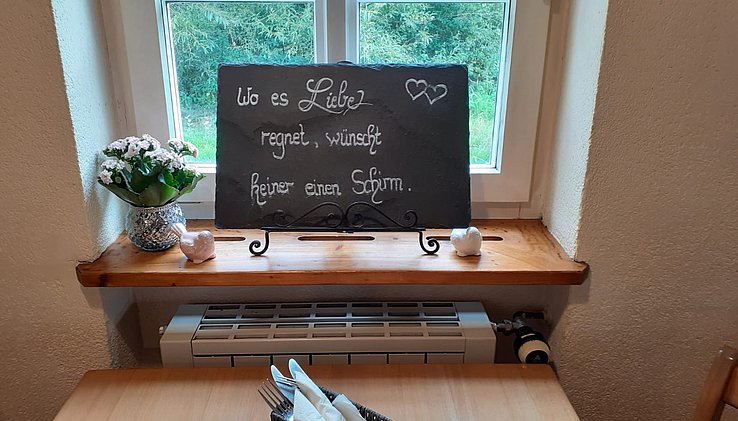 Wo es Liebe
regnet, wünscht
keiner einen Schirm.